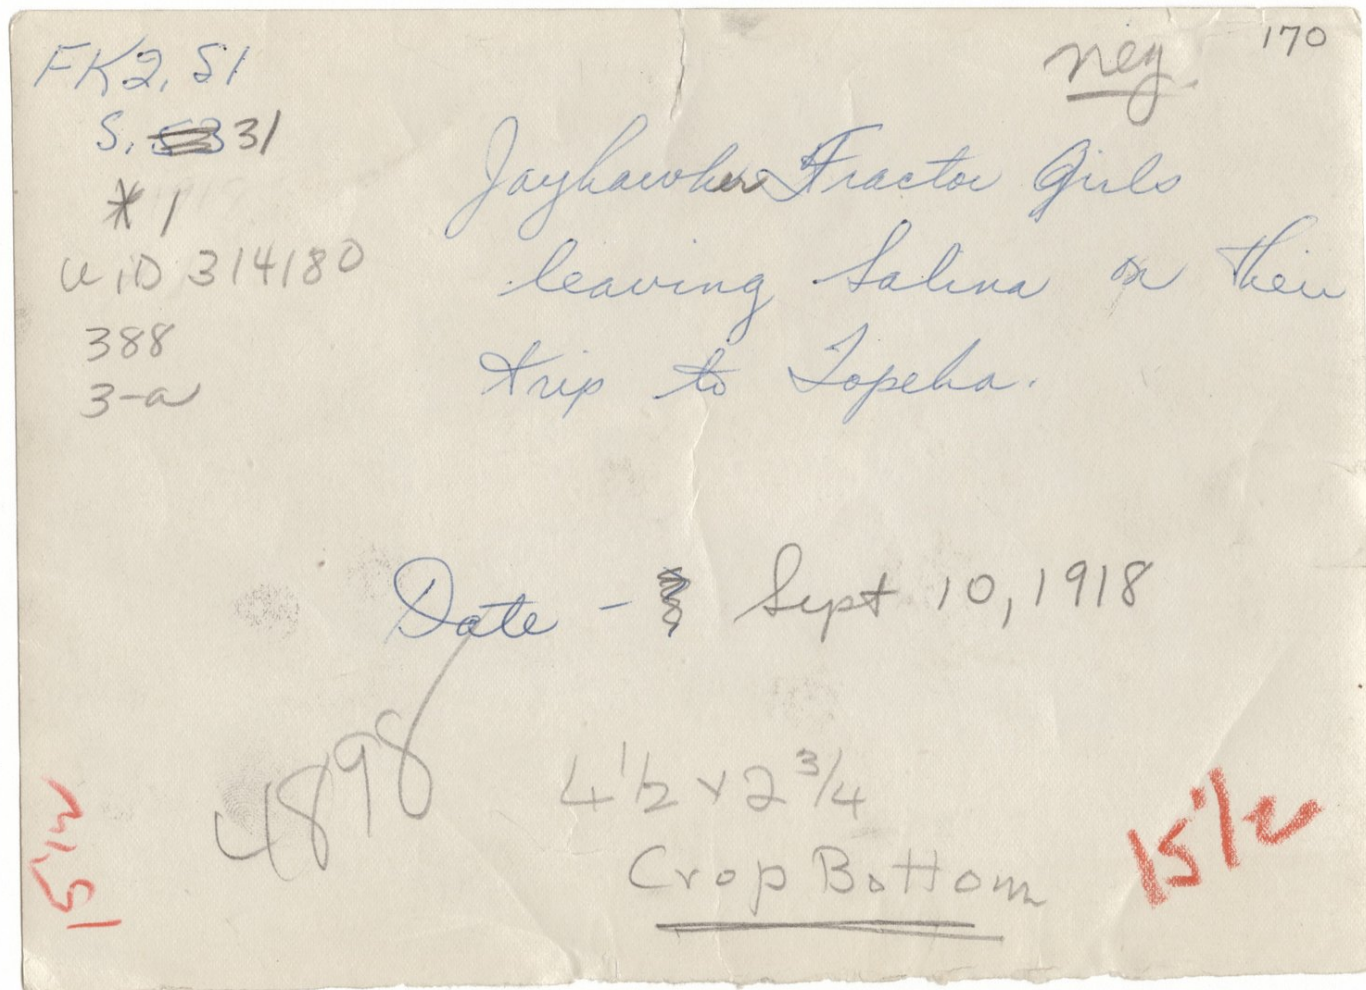 170
neg.
FK2, S1
S. 31
* 1
U,D 314180
388
3-a
Jayhawker Tractor Girls
leaving Salina on their
trip to Topeka.
Date - Sept 10, 1918
4898
4 1/2 x 2 3/4
Crop Bottom
15 1/2
15 1/2